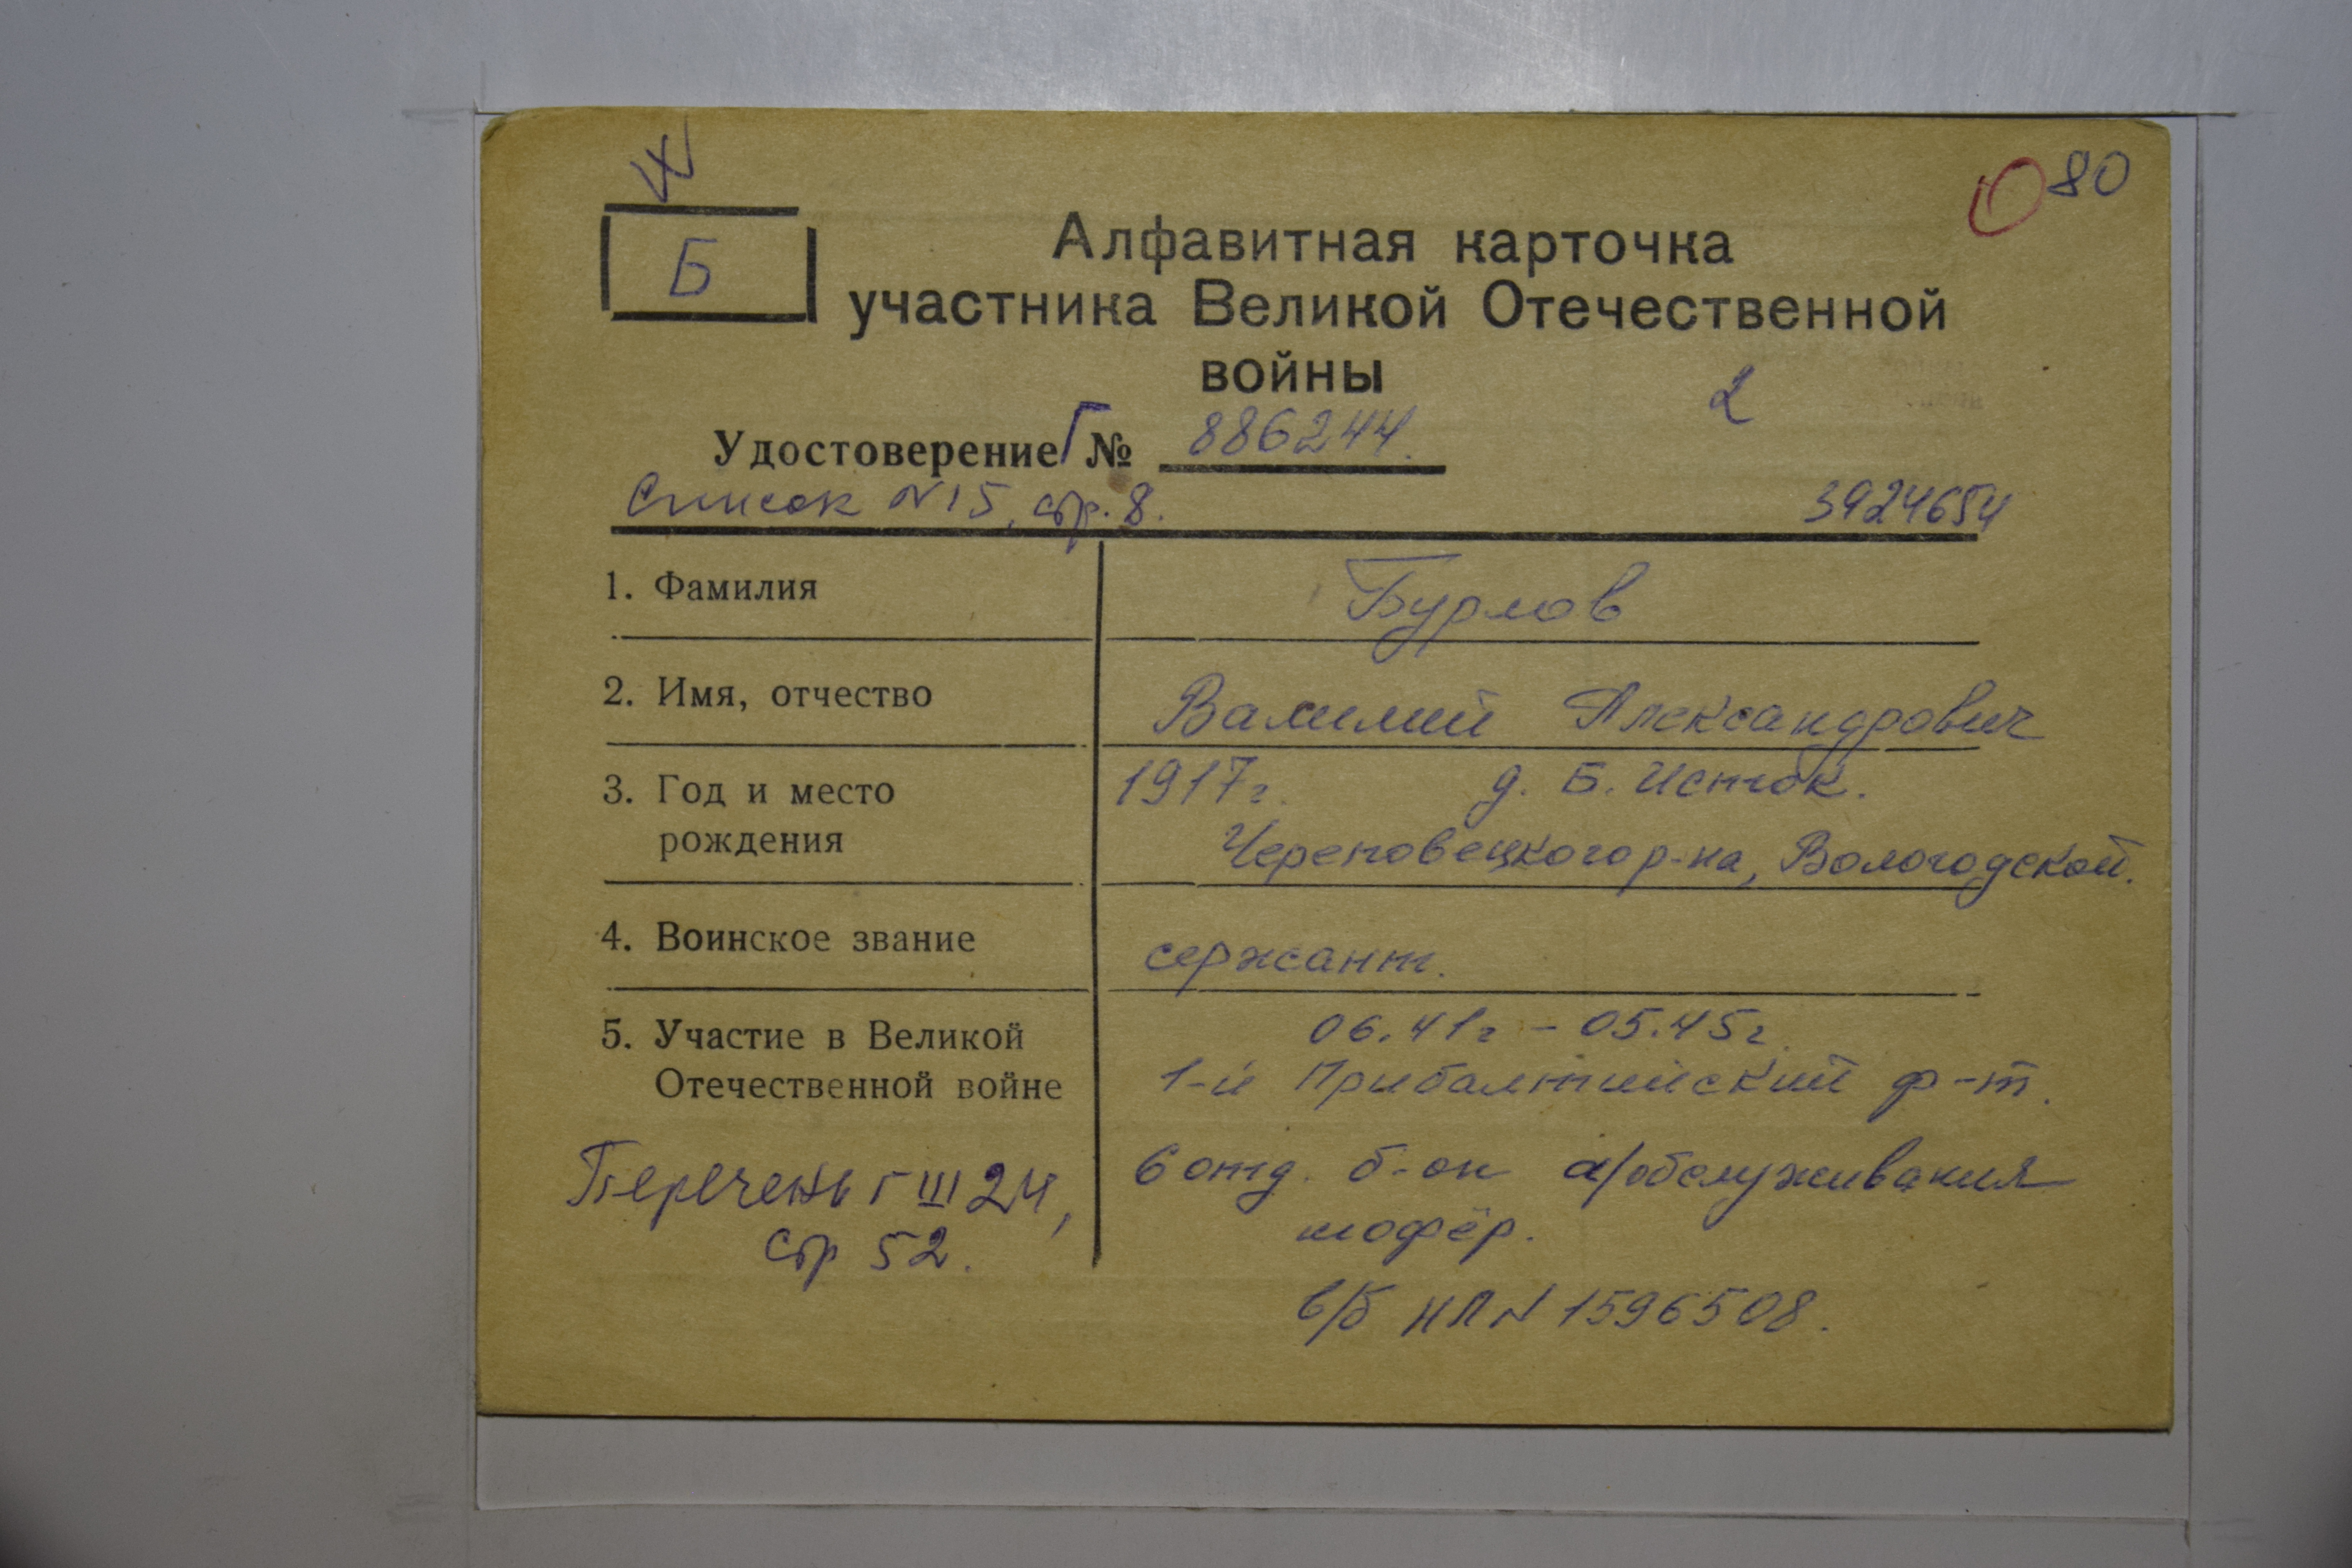 80
Б
Алфавитная карточка
участника Великой Отечественной
войны
2
Удостоверение Г № 886244.
Список N 15, стр. 8.
3924654
1. Фамилия Бурлов
2. Имя, отчество Василий Александрович
3. Год и место 1917 г. д. Б. Исток.
рождения Череповецкого р-на, Вологодской.
4. Воинское звание сержант.
5. Участие в Великой 06.41г - 05.45г.
Отечественной войне 1-й Прибалтийский ф-т.
Перечень Г III 24, 6 отд. б-он а/обслуживания
стр 52. шофёр.
в/б НП N 1596508.